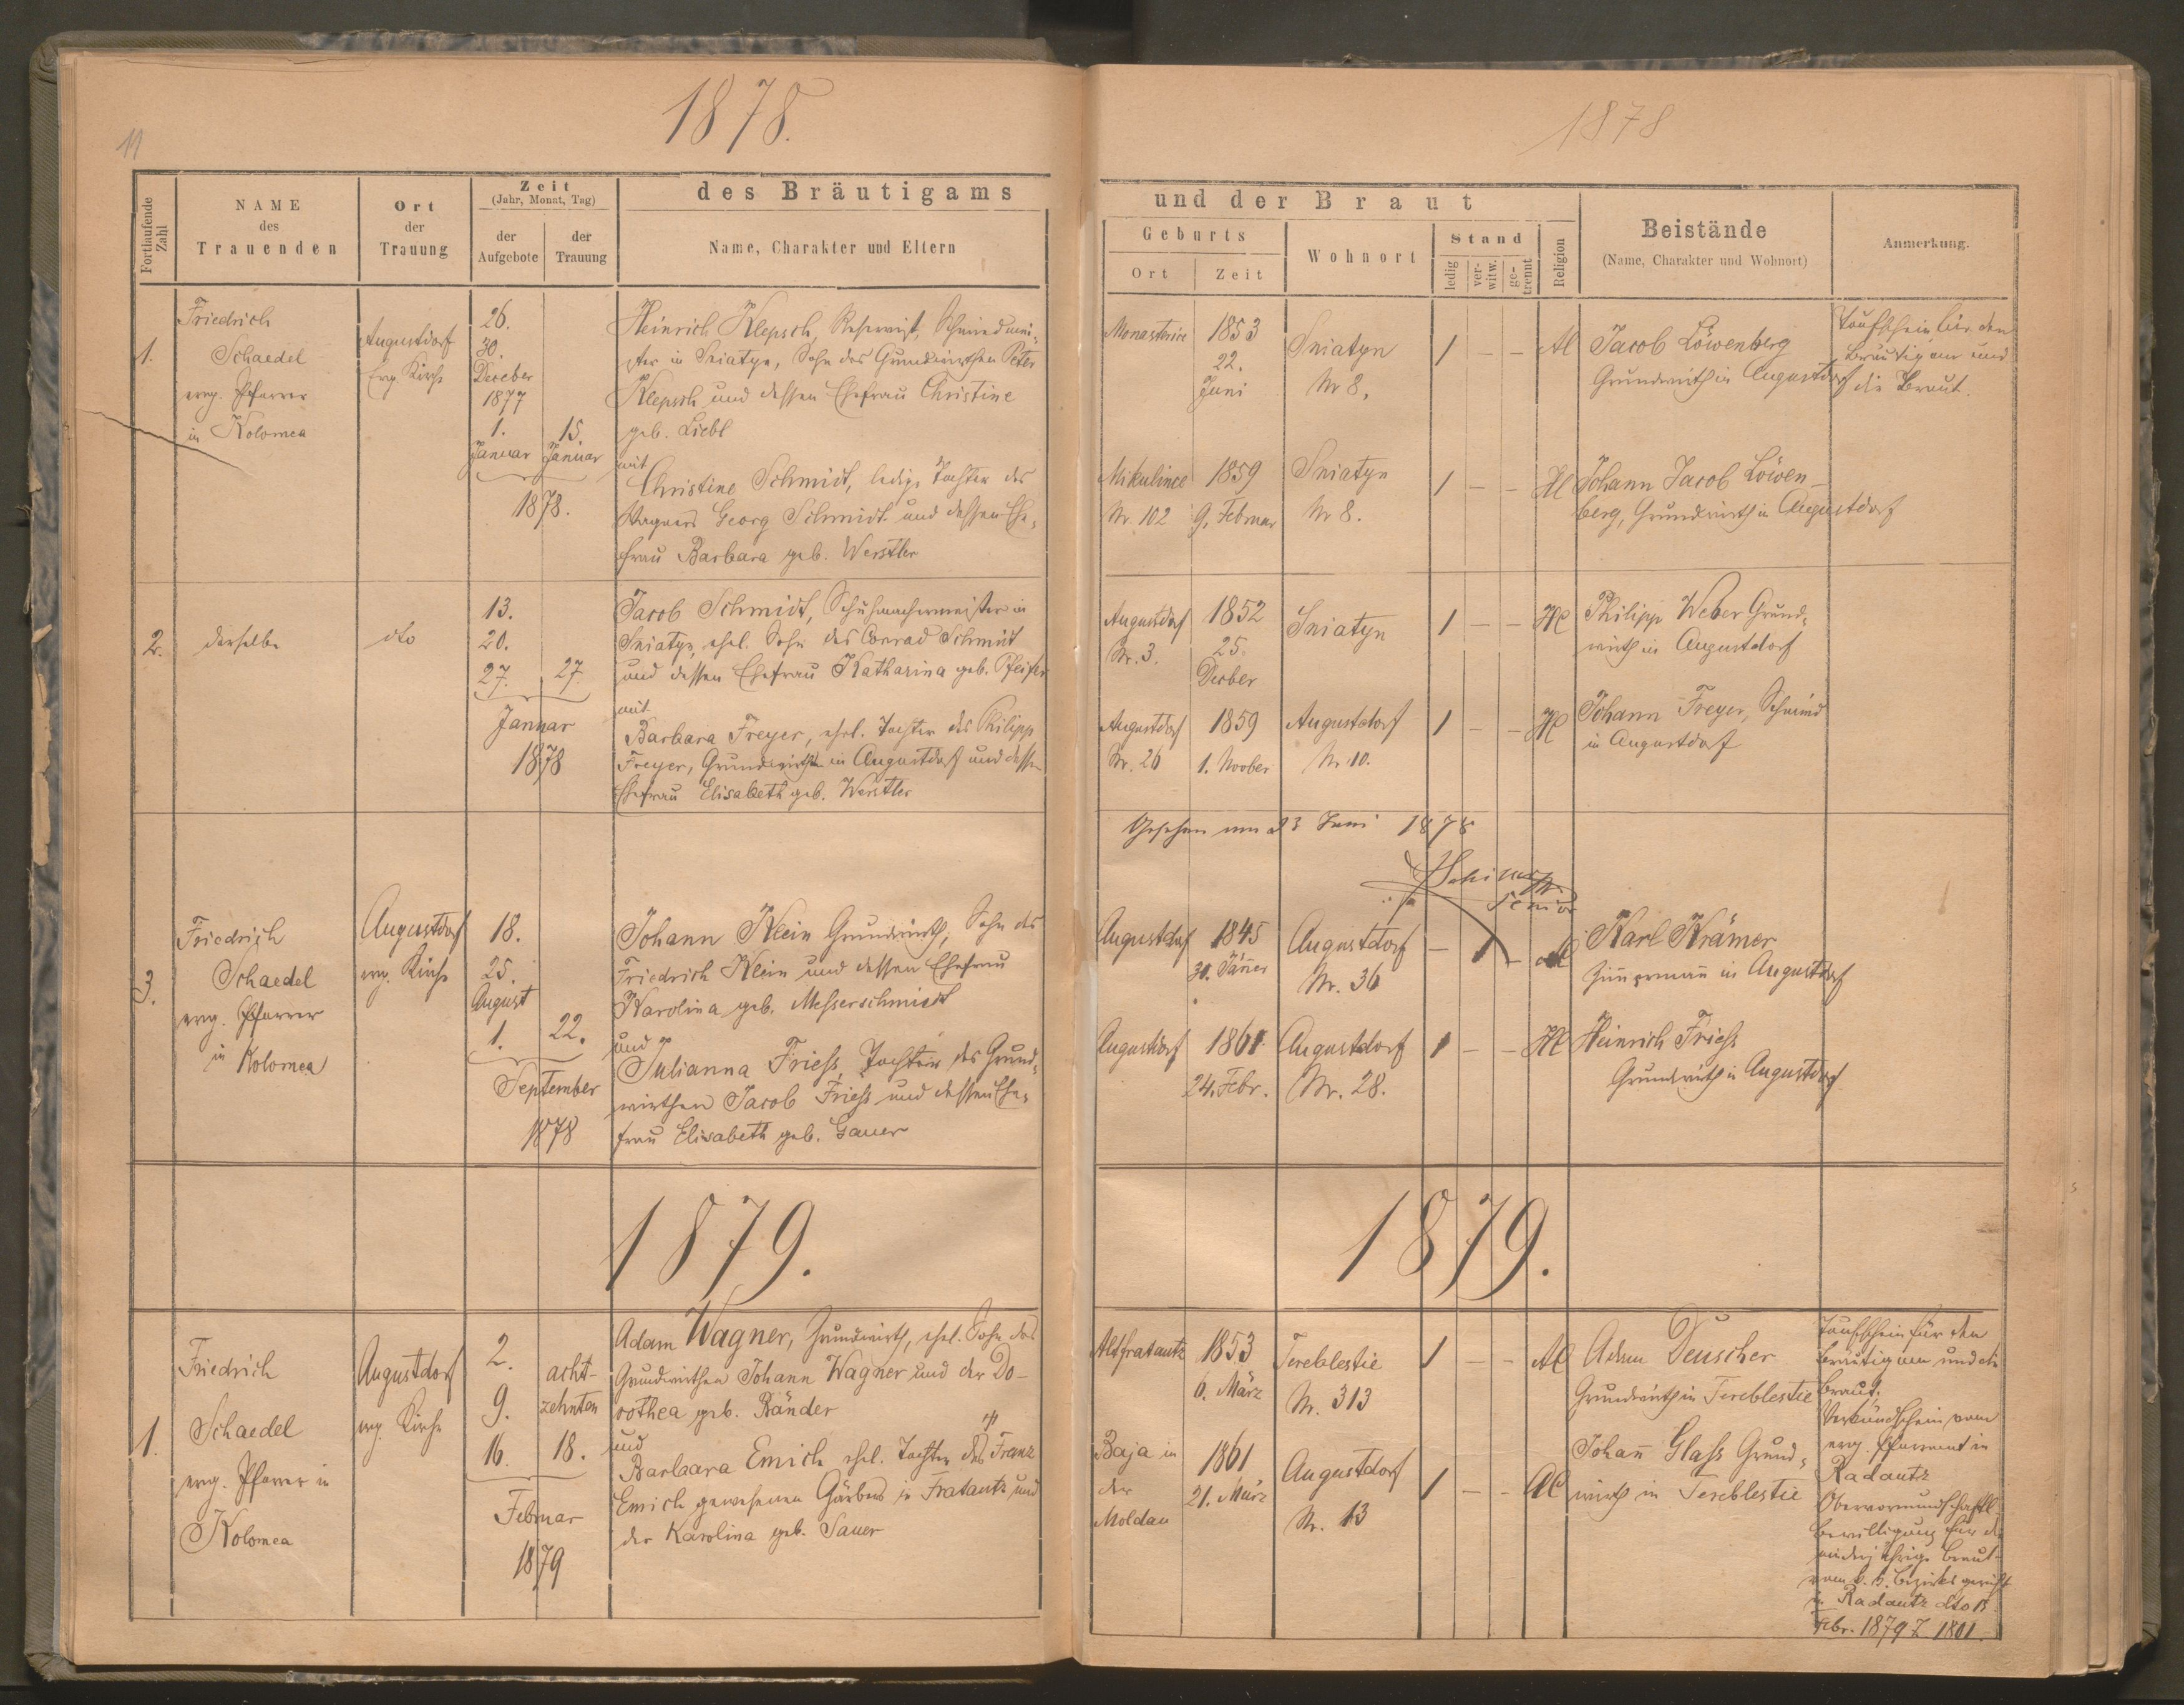 1878.
1878
11
Fortlaufende Zahl
NAME
des
Trauenden
Ort
der
Trauung
Zeit
(Jahr, Monat, Tag)
der
Aufgebote
der
Trauung
des Bräutigams
Name, Charakter und Eltern
und der Braut
Geburts
Ort
Zeit
Wohnort
Stand
ledig
ver-
witw.
ge-
trennt
Religion
Beistände
(Name, Charakter und Wohnort)
Anmerkung.
1.
Friedrich
Schaedel
evg. Pfarrer
in Kolomea
Augustdorf
Evg. Kirche
26.
30.
Deceber
1877
1.
Januar
15.
Januar
1878.
Heinrich Klepsch, Reservist, Schmiedmei-
ster in Sniatyn, Sohn des Grundwirthen Peter
Klepsch und dessen Ehefrau Christine
geb. Liebl
mit
Christine Schmidt, ledige Tochter des
Wagners Georg Schmidt und dessen Ehe-
frau Barbara geb. Werstler
Monasterice
1853
22.
Juni
Sniatyn
Nr 8.
1 – –
AC
Jacob Löwenberg
Grundwirth in Augustdorf
Taufschein für den
Bräutigam und
die Braut.
Mikulince
Nr. 102
1859
9. Februar
Sniatyn
Nr 8.
1 – –
HC
Johann Jacob Löwen-
berg, Grundwirth in Augustdorf
2.
derselbe
dto
13.
20.
27.
27.
Januar
1878
Jacob Schmidt, Schuhmachermeister in
Sniatyn, ehel. Sohn des Conrad Schmidt
und dessen Ehefrau Katharina geb. Pfeifer
mit
Barbara Freyer, ehel. Tochter des Philipp
Freyer, Grundwirth in Augustdorf und dessen
Ehefrau Elisabeth geb. Werstler
Augustdorf
Nr. 3.
1852
25.
Decber
Sniatyn
1 – –
HC
Philipp Weber Grund-
wirth in Augustdorf
Augustdorf
Nr. 26
1859
1. Novber
Augustdorf
Nr 10.
1 – –
HC
Johann Freyer, Schmied
in Augustdorf
Gesehen am 23 Juni 1878
Senior
3.
Friedrich
Schaedel
evg. Pfarrer
in Kolomea
Augustdorf
evg. Kirche
18.
25.
August
1.
22.
September
1878
Johann Klein Grundwirth, Sohn des
Friedrich Klein und dessen Ehefrau
Karolina geb. Messerschmidt
und
Julianna Friess, Tochter des Grund-
wirthen Jacob Friess und dessen Ehe-
frau Elisabeth geb. Gauer
Augustdorf
1845
30. Jäner
Augustdorf
Nr. 36
– 1 –
Karl Krämer
Zimmermann in Augustdorf
Augustdorf
1861
24. Febr.
Augustdorf
Nr. 28.
1 – –
HC
Heinrich Friess
Grundwirth in Augustdorf
1879.
1879.
1.
Friedrich
Schaedel
evg. Pfarrer in
Kolomea
Augustdorf
evg. Kirche
2.
9.
16.
acht-
zehnten
18.
Februar
1879
Adam Wagner, Grundwirth, ehel. Sohn des
Grundwirthen Johann Wagner und der Do-
rothea geb. Ränder
und
Barbaara Emich ehel. Tochter des Franz
Emich gewesenen Gärbers in Fratautz und
der Karolina geb. Sauer
Altfratautz
1853
6. März
Tereblestie
Nr. 313
1 – –
AC
Adam Deuscher
Grundwirth in Tereblestie
Taufschein für den
Bräutigam und die
Braut.
Verkündschein vom
evg. Pfarramt in
Radautz
Obervormundschaftl.
Bewilligung für die
minderjährige Braut
vom k. k. Bezirksgericht
in Radautz dto 13
Febr. 1879 Z. 1801.
Baja in
der
Moldau
1861
21. März
Augustdorf
Nr. 13
1 – –
AC
Johan̄ Glass Grund-
wirth in Tereblestie